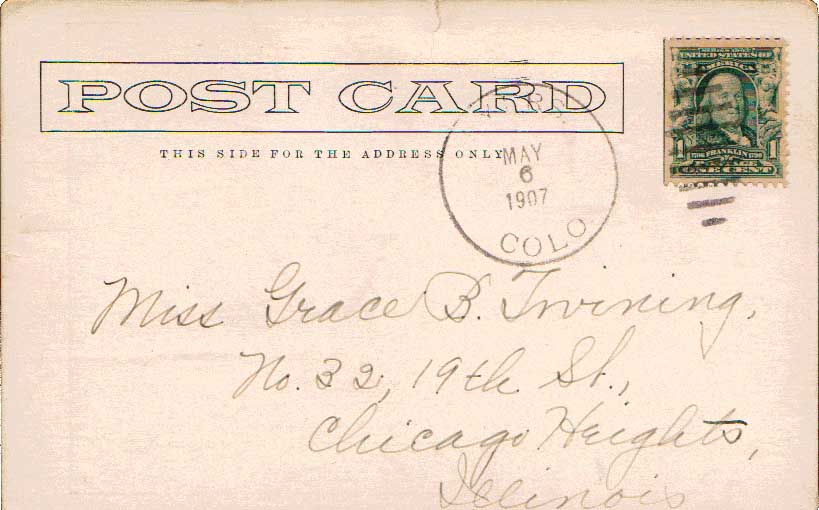 POST CARD
THIS SIDE FOR THE ADDRESS ONLY
MAY
6
1907
COLO
SERIES 1902
UNITED STATES OF
AMERICA
1 FRANKLIN 1
ONE CENT
Miss Grace B. Twining,
No. 32, 19th St.,
Chicago Heights,
Illinois